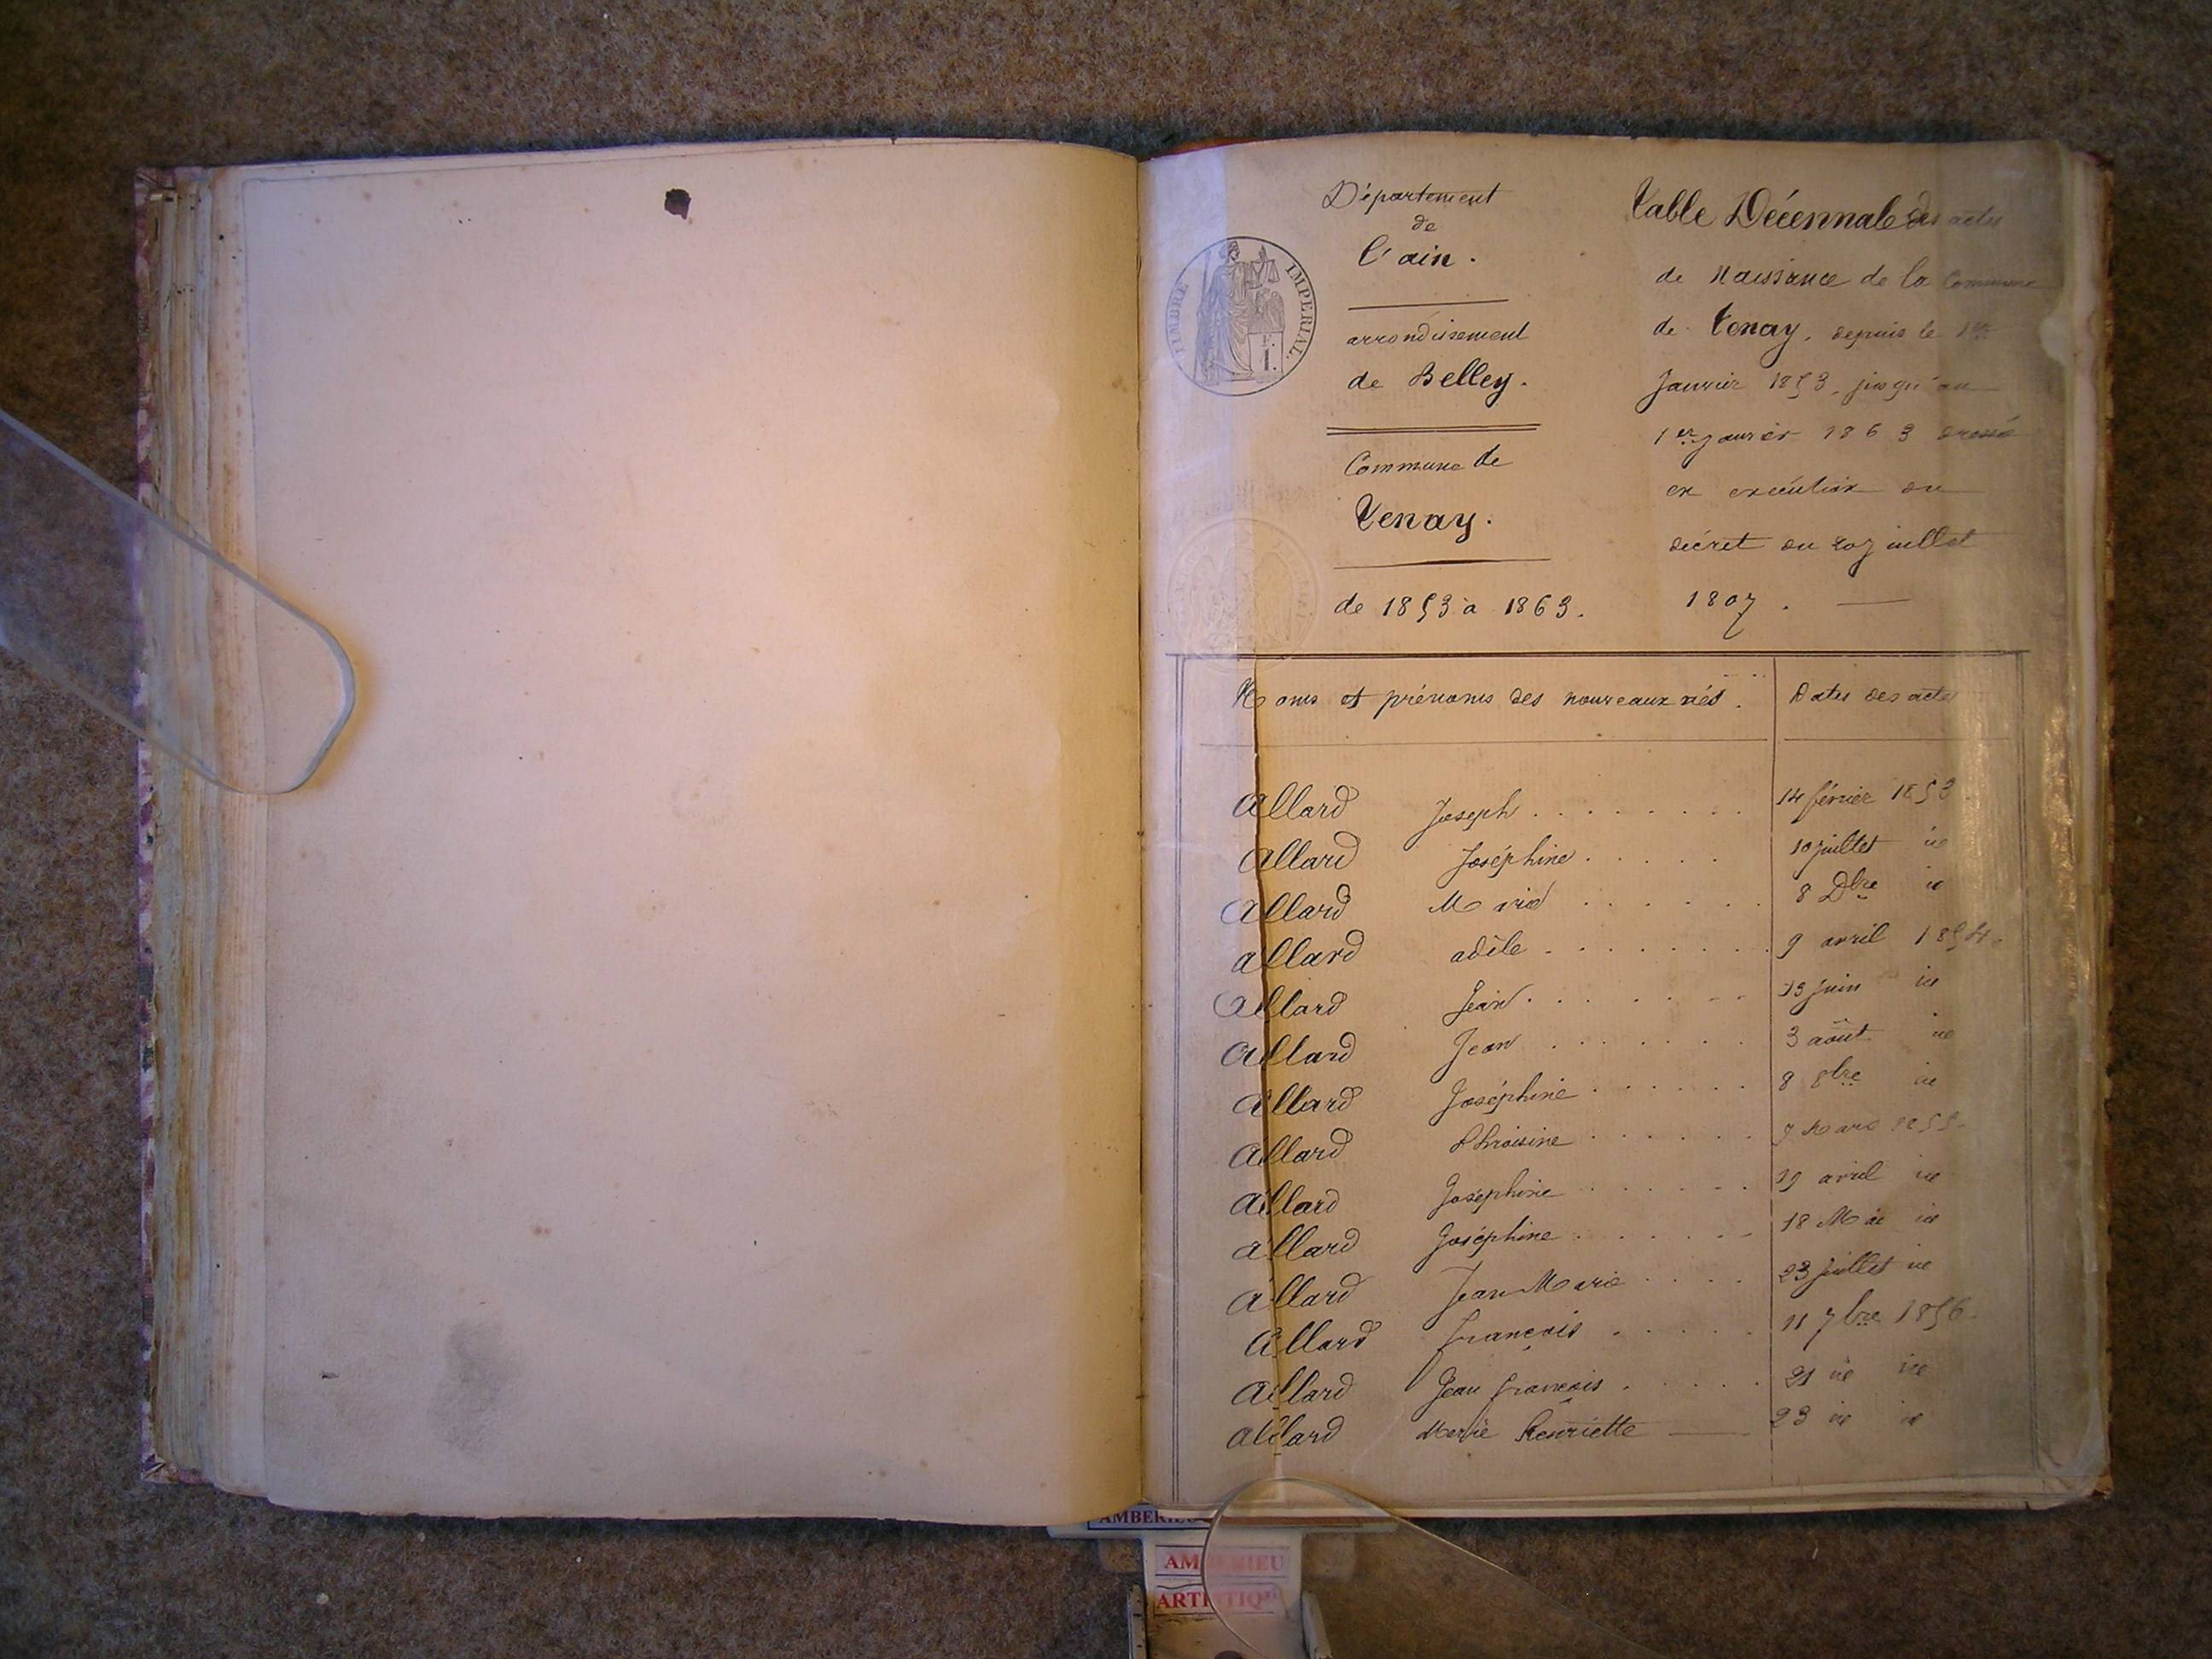 Département
de
l'ain.
arrondissement
de Belley.
Commune de
Tenay.
de 1853 à 1863.
TIMBRE IMPERIAL.
Table Décennale des actes
de Naissance de la Commune
de Tenay, depuis le 1er
Janvier 1853, jusqu'au
1er janvier 1863 dressé
en exécution du
décret du 20 juillet
1807.
Noms et prénoms des nouveaux nés. Dates des actes
Allard Joseph 14 février 1853
Allard Joséphine 10 juillet id
Allard Marie 8 Dbre id
allard adèle 9 avril 1854.
Allard Jean 13 juin id
Allard Jean 3 août id
Allard Joséphine 8 8bre id
Allard 9 Mars 1855.
Allard Joséphine 19 avril id
allard Joséphine 18 Mai id
allard Jean Marie 23 juillet id
Allard françois 11 7bre 1856.
Allard Jean françois 21 id id
allard Marie henriette 23 id id
AMBERIEU
AMBERIEU
ARTISTIQU